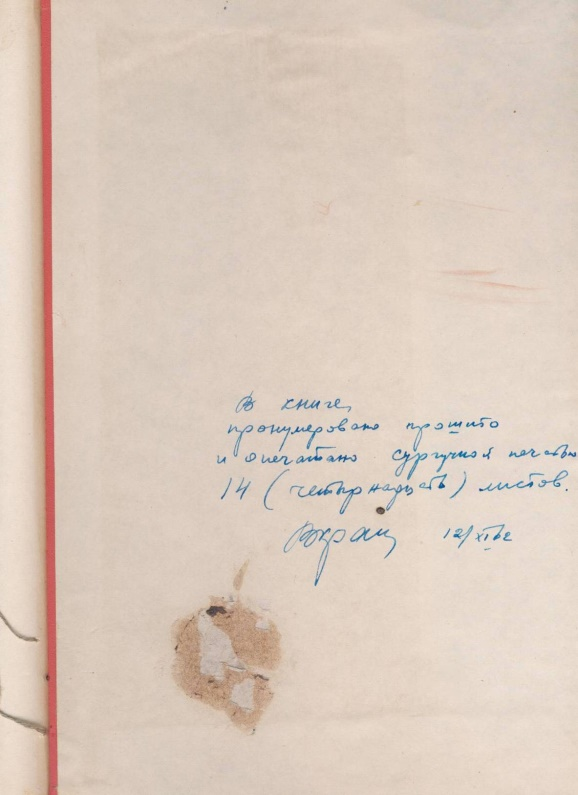 В книге,
пронумеровано прошито
и опечатано сургучной печатью
14 (четырнадцать) листов.
12/XI 62